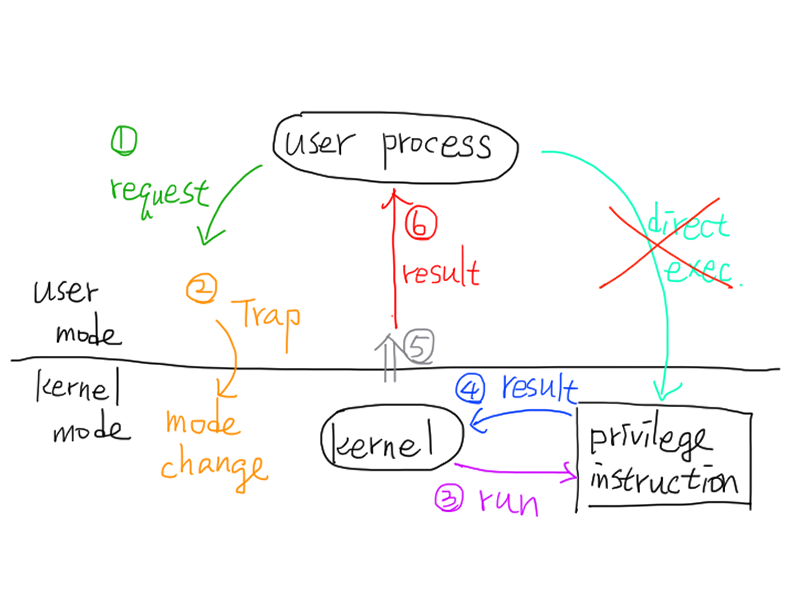 ①
user process
request
direct
exec.
⑥
result
②
Trap
user
mode
⑤
kernel
mode
mode
change
④ result
kernel
privilege
instruction
③ run